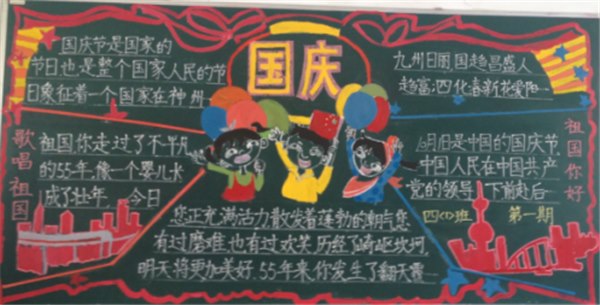 国庆
国庆节是国家的
节日也是整个国家人民的节
日象征着一个国家在神州
九州日丽国超昌盛人
趋富;四化春新花爱阳…
歌唱祖国
祖国你走过了不平凡
的55年,像一个婴儿长
成了壮年,今日
10月1日是中国的国庆节,
中国人民在中国共产
党的领导下前赴后…
祖国你好
您正充满活力散发着蓬勃的朝气您
有过磨难也有过欢笑历经了崎岖坎坷,
明天将更加美好.55年来,你发生了翻天覆…
四(1)班 第一期